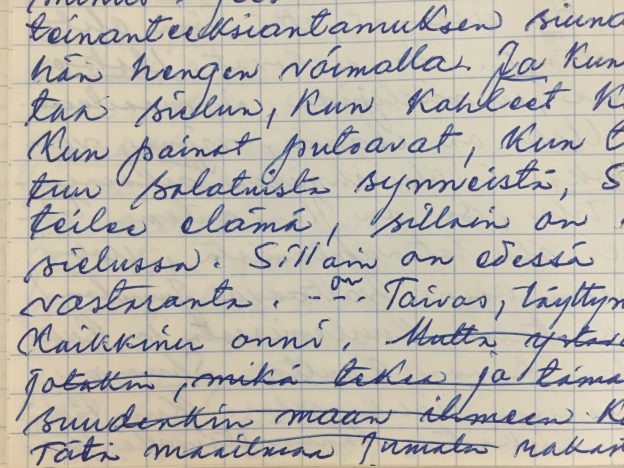 teinanteeksiantamuksen siuna
hän hengen voimalla. Ja kun
taa sielun, kun kahleet k
kun painot putoavat, kun t
tuu salatuista synneistä, s
teilee elämä, silloin on
sielussa. Silloin on edessä
vastaranta. --- on Taivas, täyttyn
kaikkinen onni. Mutta
jotakin, mikä tekee jo tämä
suudenkin maan ihmeen. K
Tätä maailmaa Jumala rakas